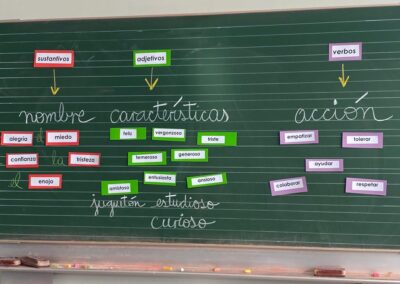 sustantivos adjetivos verbos
nombre características acción
alegría el miedo feliz vergonzoso triste empatizar tolerar
confianza la tristeza temeroso generoso ayudar
el enojo entusiasta ansioso colaborar respetar
juguetón estudioso
curioso